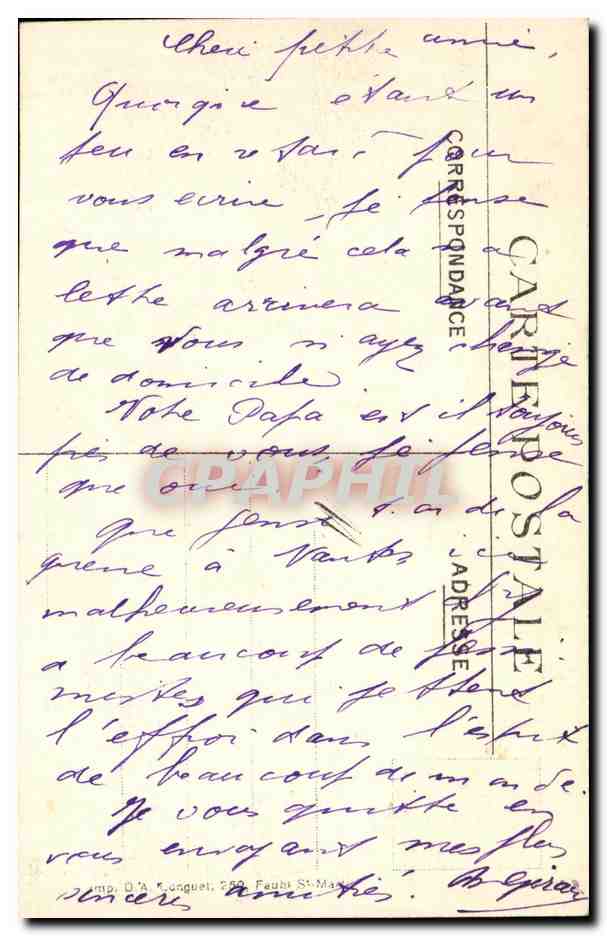 Cheri petite amie,
Quoique étant un
peu en retard pour
vous écrire, je pense
que malgré cela ma
lettre arrivera avant
que vous n'ayez changé
de domicile
Notre Papa est il toujours
près de vous, je pense
que oui.
Que pense t. on de la
guerre à Nantes ici
malheureusement il y
a beaucoup de
mistes qui jettent
l'effroi dans l'esprit
de beaucoup de monde.
Je vous quitte en
vous envoyant mes plus
sincères amitiés.
CARTE POSTALE
CORRESPONDANCE
ADRESSE
CPAPHIL
Imp. D.A. Longuet, 250, Faubg St-Martin